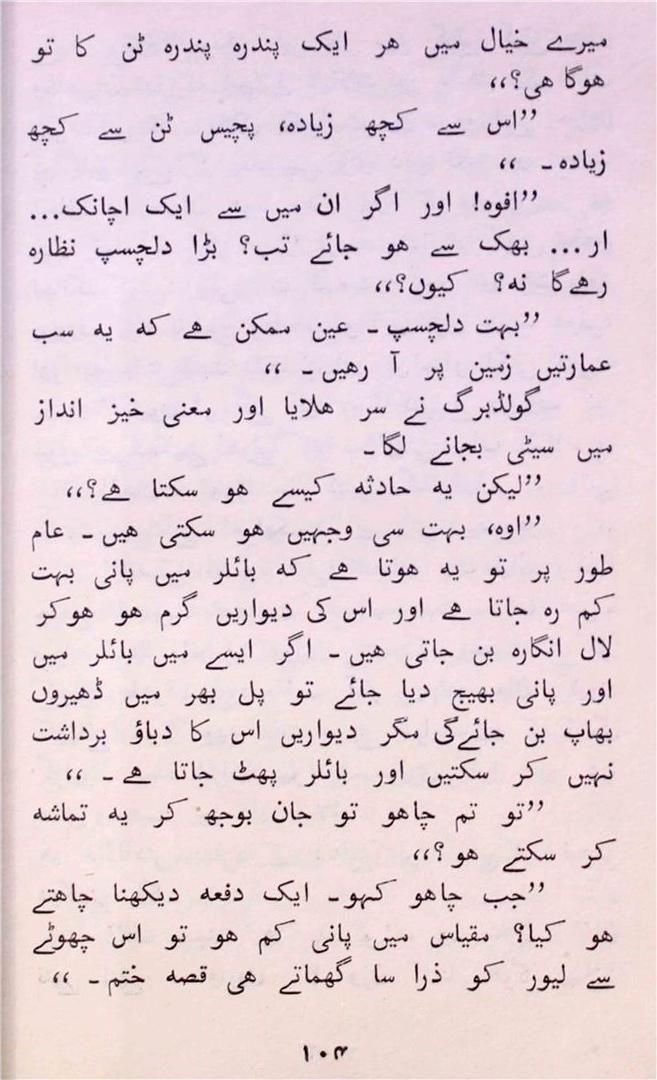 میرے خیال میں ھر ایک پندرہ پندرہ ٹن کا تو
ھوگا ھی؟،،
’’اس سے کچھ زیادہ، پچیس ٹن سے کچھ
زیادہ۔ ،،
’’افوہ! اور اگر ان میں سے ایک اچانک...
ار... بھک سے ھو جائے تب؟ بڑا دلچسپ نظارہ
رھےگا نہ؟ کیوں؟،،
’’بہت دلچسپ۔ عین ممکن ھے کہ یہ سب
عمارتیں زمین پر آ رھیں۔ ،،
گولڈبرگ نے سر ھلایا اور معنی خیز انداز
میں سیٹی بجانے لگا۔
’’لیکن یہ حادثہ کیسے ھو سکتا ھے؟،،
’’اوہ، بہت سی وجہیں ھو سکتی ھیں۔ عام
طور پر تو یہ ھوتا ھے کہ بائلر میں پانی بہت
کم رہ جاتا ھے اور اس کی دیواریں گرم ھو ھوکر
لال انگارہ بن جاتی ھیں۔ اگر ایسے میں بائلر میں
اور پانی بھیج دیا جائے تو پل بھر میں ڈھیروں
بھاپ بن جائےگی مگر دیواریں اس کا دباؤ برداشت
نہیں کر سکتیں اور بائلر پھٹ جاتا ھے۔ ،،
’’تو تم چاھو تو جان بوجھ کر یہ تماشہ
کر سکتے ھو؟،،
’’جب چاھو کہو۔ ایک دفعہ دیکھنا چاھتے
ھو کیا؟ مقیاس میں پانی کم ھو تو اس چھوٹے
سے لیور کو ذرا سا گھماتے ھی قصہ ختم۔ ،،
۱۰۴